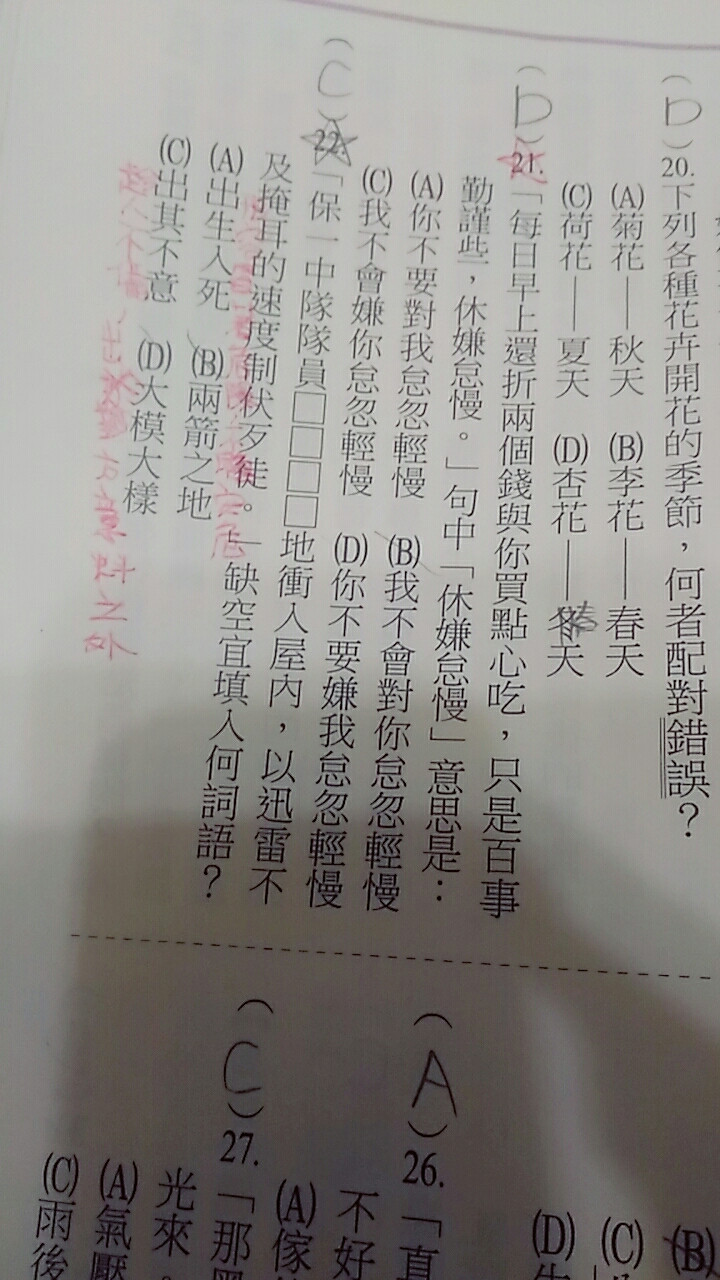 (D) 20. 下列各種花卉開花的季節，何者配對錯誤？
(A)菊花——秋天 (B)李花——春天
(C)荷花——夏天 (D)杏花——冬天
春
(D) 21. 「每日早上還折兩個錢與你買點心吃，只是百事
勤謹些，休嫌怠慢。」句中「休嫌怠慢」意思是：
(A)你不要對我怠忽輕慢 (B)我不會對你怠忽輕慢
(C)我不會嫌你怠忽輕慢 (D)你不要嫌我怠忽輕慢
(C) 22. 「保一中隊隊員□□□□地衝入屋內，以迅雷不
及掩耳的速度制伏歹徒。」缺空宜填入何詞語？
(A)出生入死 (B)兩箭之地
(C)出其不意 (D)大模大樣
趁人不備、出乎對方意料之外
(B)
(C)
(D)
(A) 26. 「直
不好
(A)傢
(C) 27. 「那
光來。
(A)氣壓
(C)雨後